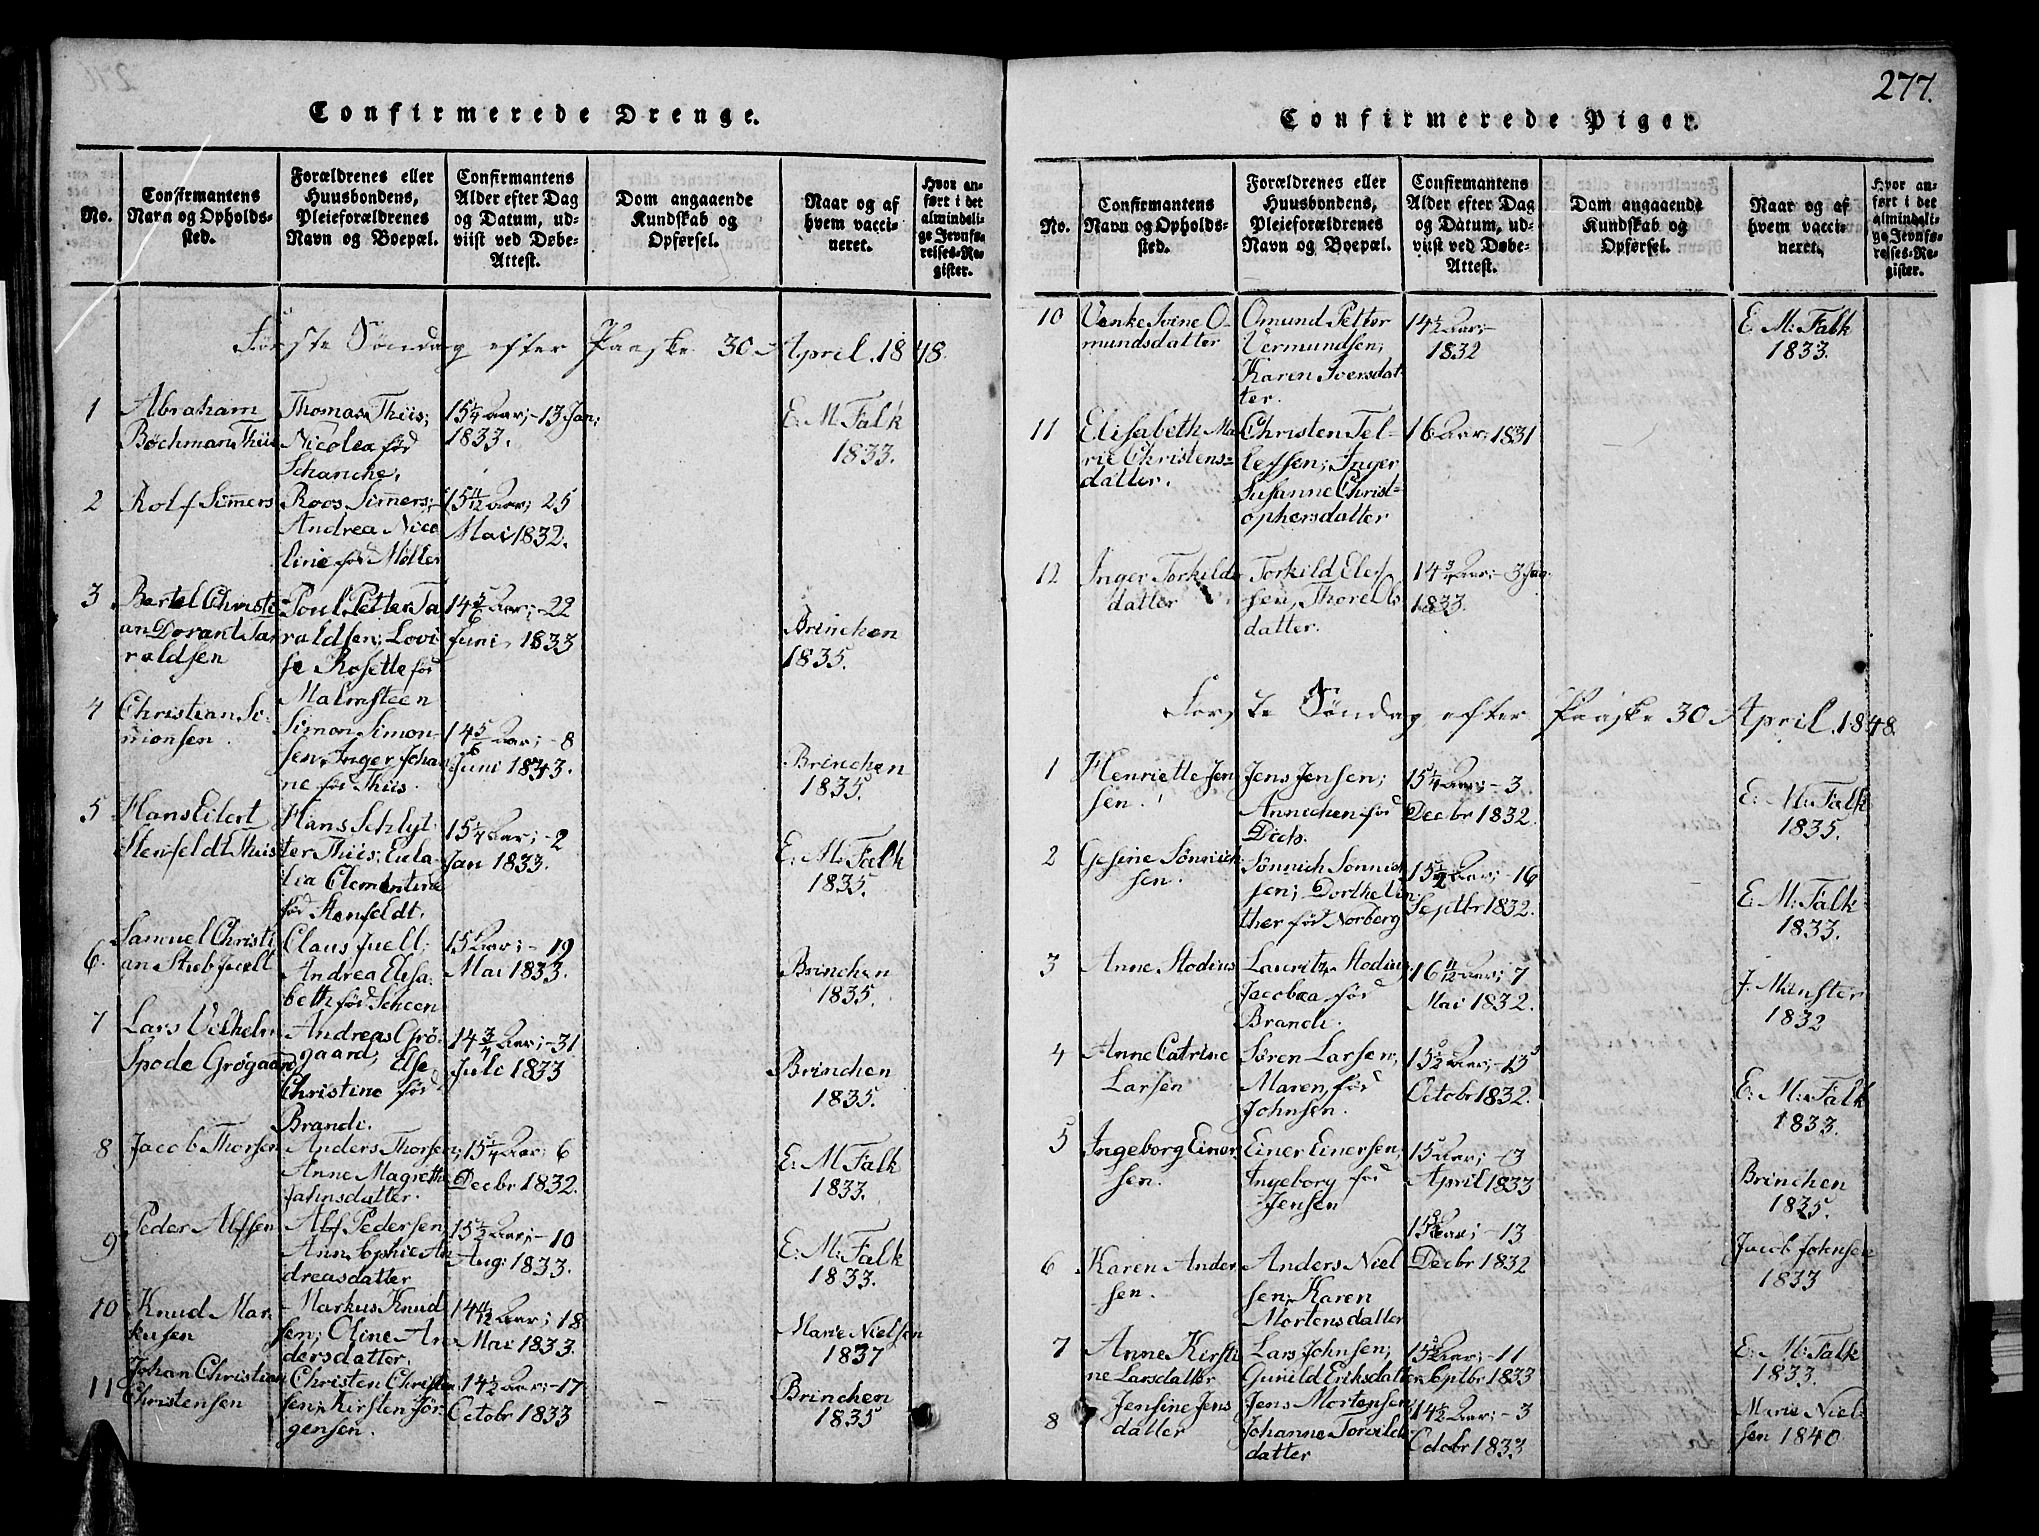 277.
Confirmerede Drenge.
No.
Confirmantens
Navn og Opholds-
sted.
Forældrenes eller
Huusbondens,
Pleieforældrenes
Navn og Boepæl.
Confirmantens
Alder efter Dag
og Datum, ud-
viist ved Døbe-
Attest.
Dom angaaende
Kundskab og
Opførsel.
Naar og af
hvem vacci-
neret.
Hvor an-
ført i det
almindeli-
ge Jevnfø-
relses-Re-
gister.
Første Søndag efter Paaske 30 April 1848.
1
Abraham
Bøchman Thiis
Thomas Thiis;
Nicolea fød
Schancke,
15 1/4 Aar; - 13 Jan:
1833.
E. M. Falk
1833.
2
Rolf Simers
Roos Simers;
Andrea Nico
line fød Møller
15 11/12 Aar; 25
Mai 1832.
3
Bertel Christi
an Dorant Ta
raldsen
Poul Petter Ta
raldsen; Lovi
se Rosette fød
Malmsteen
14 5/6 Aar; - 22
Juni 1833
Brinchen
1835.
4
Christian Si-
monsen
Simon Simon-
sen, Inger Johan
ne fød Thiis.
14 5/6 Aar; - 8
Juni 1833.
Brinchen
1835.
5
Hans Eilert
Stenfeldt Thiis
Hans Schlyt-
ter Thiis; Eula-
lia Clementine
fød Stenfeldt.
15 1/4 Aar; - 2
Jan 1833.
E: M: Falk
1835.
6.
Samuel Christi
an Stub Juell
Claus Juell;
Andrea Elisa-
beth fød Scheen
15 Aar; - 19
Mai 1833.
Brinchen
1835.
7
Lars Vilhelm
Spode Grøgaard
Andreas Grø-
gaard; Else
Christine fød
Brandt.
14 3/4 Aar; - 31
Juli 1833
Brinchen
1835.
8
Jacob Thorsen
Anders Thorsen;
Anne Magrethe
Jahnsdatter.
15 1/4 Aar; 6
Decbr 1832.
E: M Falk
1833.
9
Peder Alfsen
Alf Pedersen,
Ann Sophie An
dreasdatter
15 1/2 Aar; - 10
Aug: 1833.
E: M: Falk
1833.
10
Knud Mar-
kusen
Markus Knud
sen; Oline An
dersdatter.
14 11/12 Aar; 18
Mai 1833.
Marie Nielsen
1837
11
Johan Christian
Christensen
Christen Christen
sen, Kirsten Jør-
gensen.
14 1/2 Aar; - 17
Octobr 1833
Brinchen
1835
Confirmerede Piger.
No.
Confirmantens
Navn og Opholds-
sted.
Forældrenes eller
Huusbondens,
Pleieforældrenes
Navn og Boepæl.
Confirmantens
Alder efter Dag
og Datum, ud-
viist ved Døbe-
Attest.
Dom angaaende
Kundskab og
Opførsel.
Naar og af
hvem vacci-
neret.
Hvor an-
ført i det
almindeli-
ge Jevnfø-
relses-Re-
gister.
10
Venke Svine O-
mundsdatter
Omund Petter
Vermundsen;
Karen Iversdat-
ter.
14 1/2 Aar; -
1832
E M: Falk
1833.
11
Elisabeth Ma-
rie Christens-
datter.
Christen Tel-
lefsen; Inger
Susanne Christ-
ophersdatter
16 Aar; 1831
12
Inger Torkilds
datter
Torkild Elef-
sen, Thore Ols
datter.
14 3/4 Aar; - 3 Jan:
1833.
Første Søndag efter Paaske 30 April 1848.
1
Henriette Jen
sen.
Jens Jensen;
Annichen fød
Diechs.
15 1/4 Aar; - 3
Decbr 1832.
E: M: Falk
1835.
2
Gesine Sønnich
sen.
Sønnich Sønnich
sen; Dorthe Vin
ther fød Norberg
15 1/2 Aar; - 16
Septbr 1832.
E: M: Falk
1833.
3
Anne Stodius
Lauritz Stodius;
Jacobea fød
Brandt.
16 11/12 Aar; 7
Mai 1832.
J. Münster
1832
4
Anne Catrine
Larsen
Søren Larsen;
Maren, fød
Johnsen.
15 1/2 Aar; - 13
Octobr 1832.
E: M: Falk
1833.
5
Ingeborg Einer
sen.
Einer Einersen;
Ingeborg fød
Jensen
15 Aar; - 13
April 1833
Brinchen
1835.
6
Karen Ander
sen.
Anders Niel
sen; Karen
Mortensdatter
15 Aar; - 13
Decbr 1832
Jacob Johnsen
1833
7
Anne Kirsti
ne Larsdatter
Lars Johnsen;
Gunild Eriksdatter
15 Aar; - 11
Septbr 1833
E: M: Falk
1833.
8
Jensine Jens
datter
Jens Mortensen;
Johanne Torvilds
datter
14 1/2 Aar; - 3
Octobr 1833
Marie Niel-
sen 1840